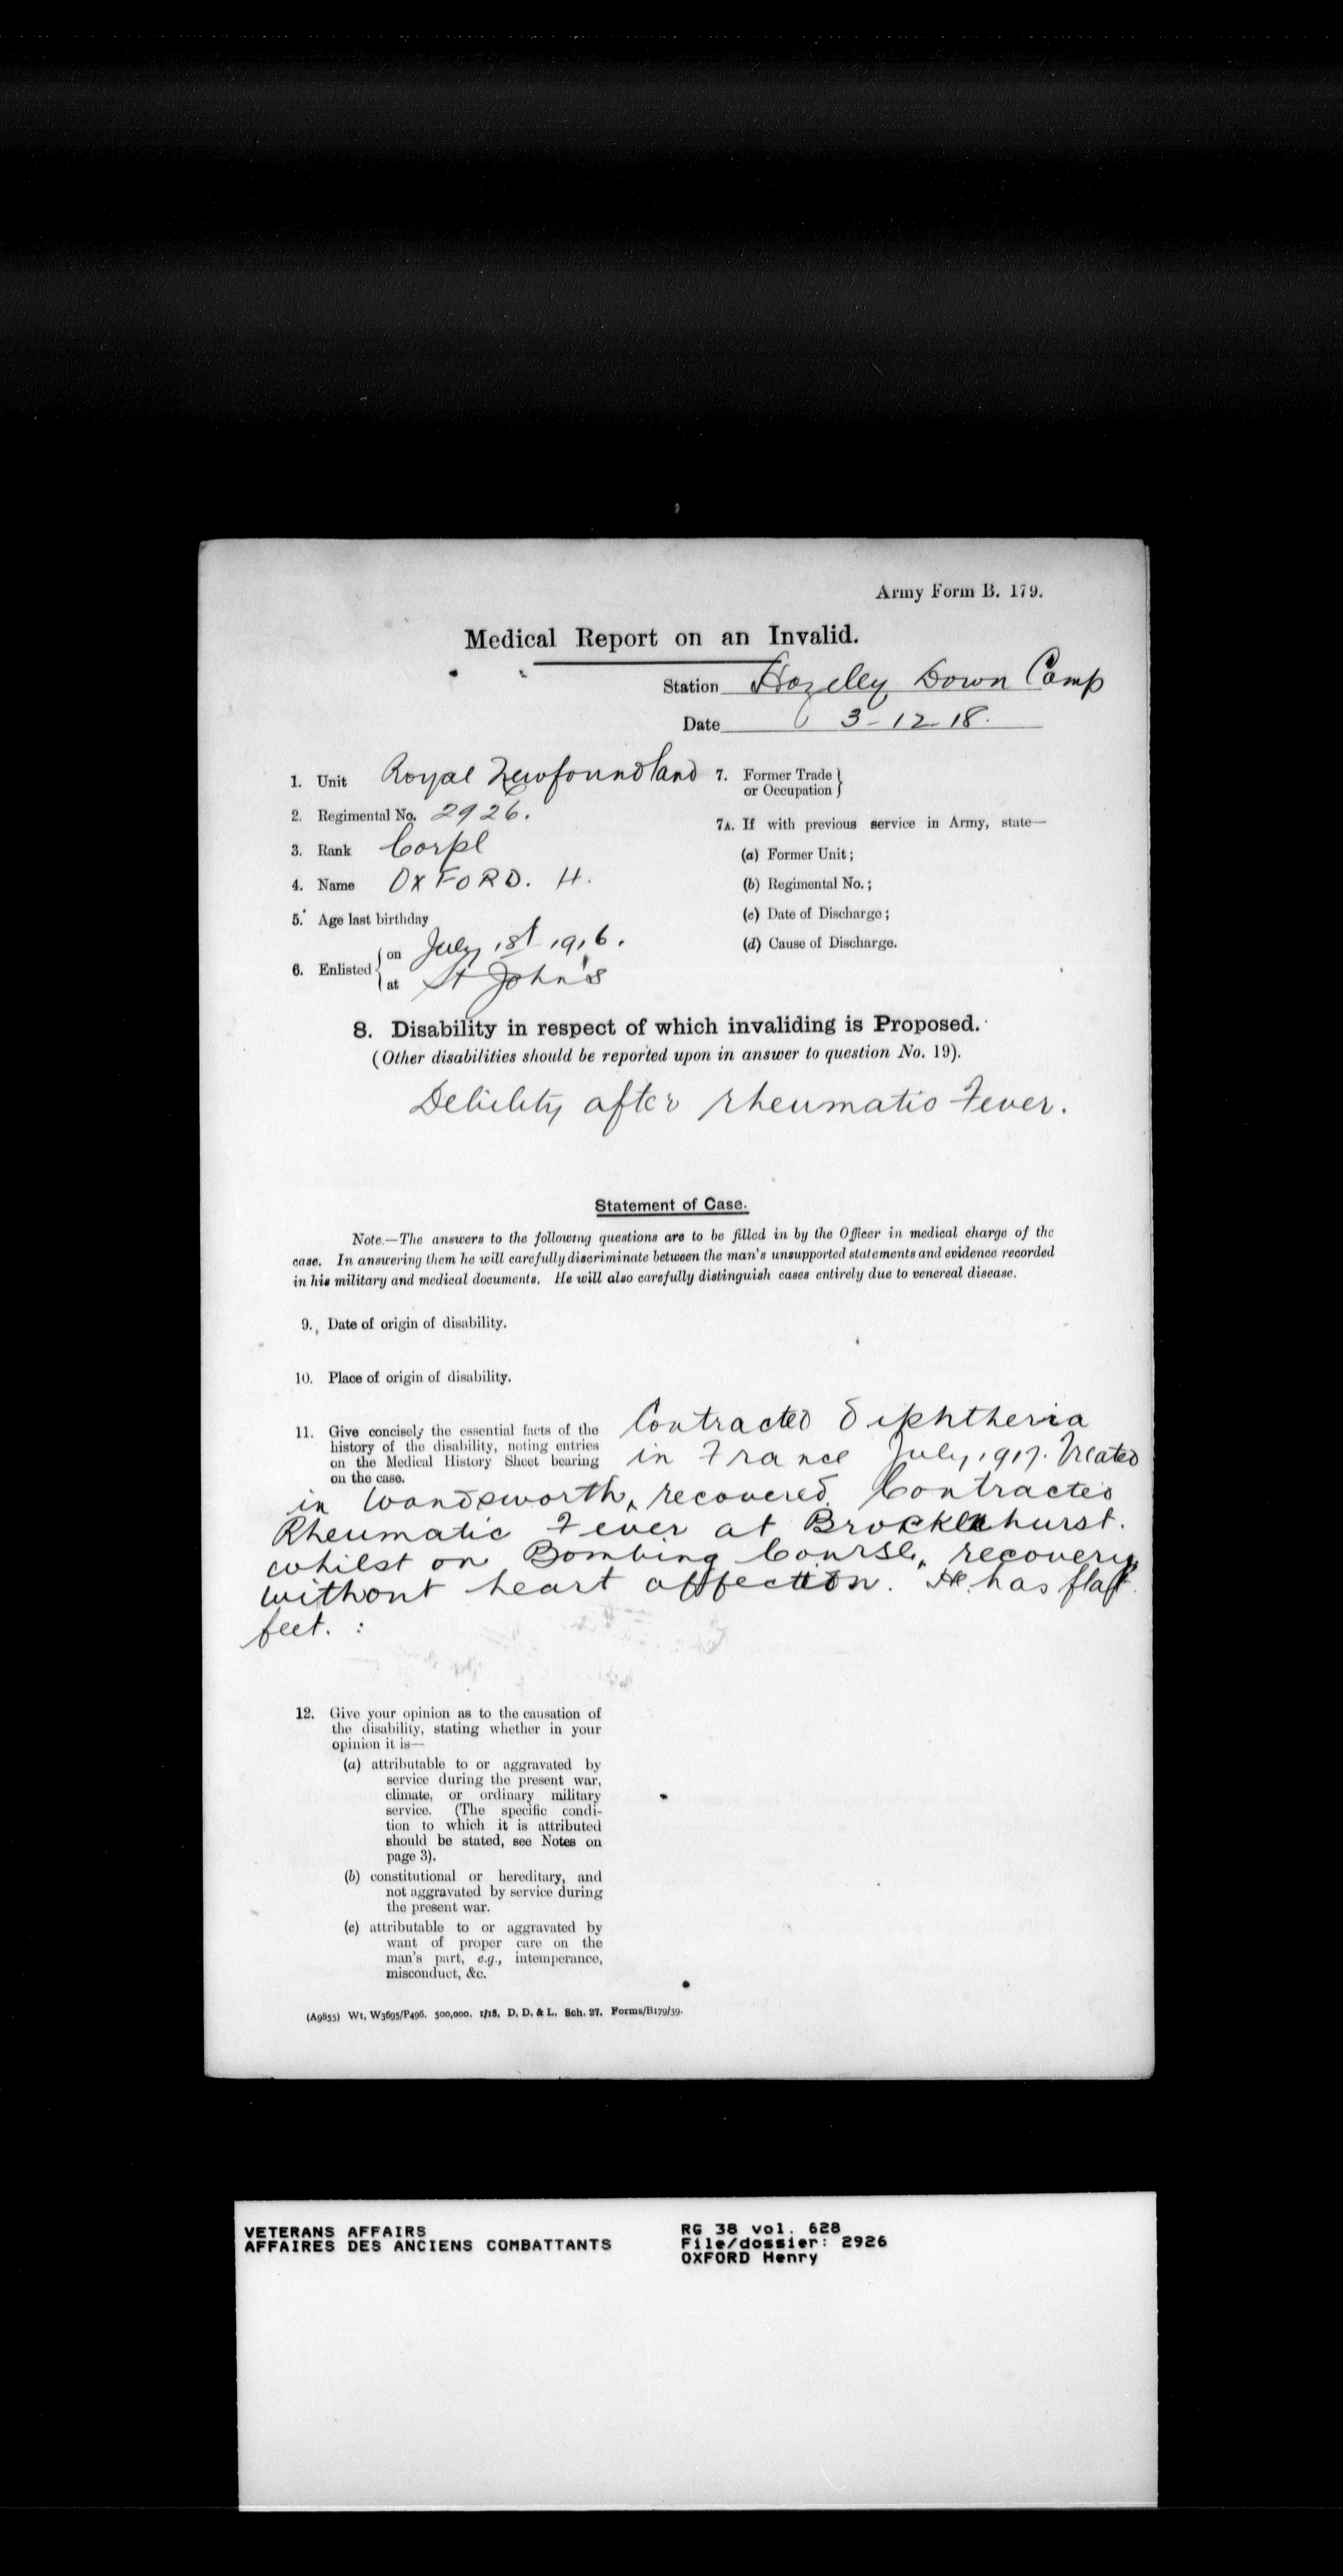 Army Form B. 179.
Medical Report on an Invalid.
Station Hazelley Down Camp
Date 3-12-18.
1. Unit Royal Newfoundland
2. Regimental No. 2926.
3. Rank Corpl
4. Name OXFORD. H.
5. Age last birthday
6. Enlisted { on July 1st 1916.
at St John's
7. Former Trade
or Occupation }
7A. If with previous service in Army, state—
(a) Former Unit;
(b) Regimental No.;
(c) Date of Discharge;
(d) Cause of Discharge.
8. Disability in respect of which invaliding is Proposed.
(Other disabilities should be reported upon in answer to question No. 19).
Debility after rheumatic Fever.
Statement of Case.
Note.—The answers to the following questions are to be filled in by the Officer in medical charge of the
case. In answering them he will carefully discriminate between the man's unsupported statements and evidence recorded
in his military and medical documents. He will also carefully distinguish cases entirely due to venereal disease.
9. Date of origin of disability.
10. Place of origin of disability.
11. Give concisely the essential facts of the
history of the disability, noting entries
on the Medical History Sheet bearing
on the case.
Contracted Diphtheria
in France July, 1917. Treated
in Wandsworth, recovered. Contracted
Rheumatic Fever at Brockenhurst.
whilst on Bombing Course, recovery
without heart affection. He has flat
feet. :
12. Give your opinion as to the causation of
the disability, stating whether in your
opinion it is—
(a) attributable to or aggravated by
service during the present war,
climate, or ordinary military
service. (The specific condi-
tion to which it is attributed
should be stated, see Notes on
page 3).
(b) constitutional or hereditary, and
not aggravated by service during
the present war.
(c) attributable to or aggravated by
want of proper care on the
man's part, e.g., intemperance,
misconduct, &c.
(A9855) Wt. W3695/P496. 500,000. 1/18. D. D. & L. Sch. 27. Forms/B179/39.
VETERANS AFFAIRS
AFFAIRES DES ANCIENS COMBATTANTS
RG 38 vol. 628
File/dossier: 2926
OXFORD Henry